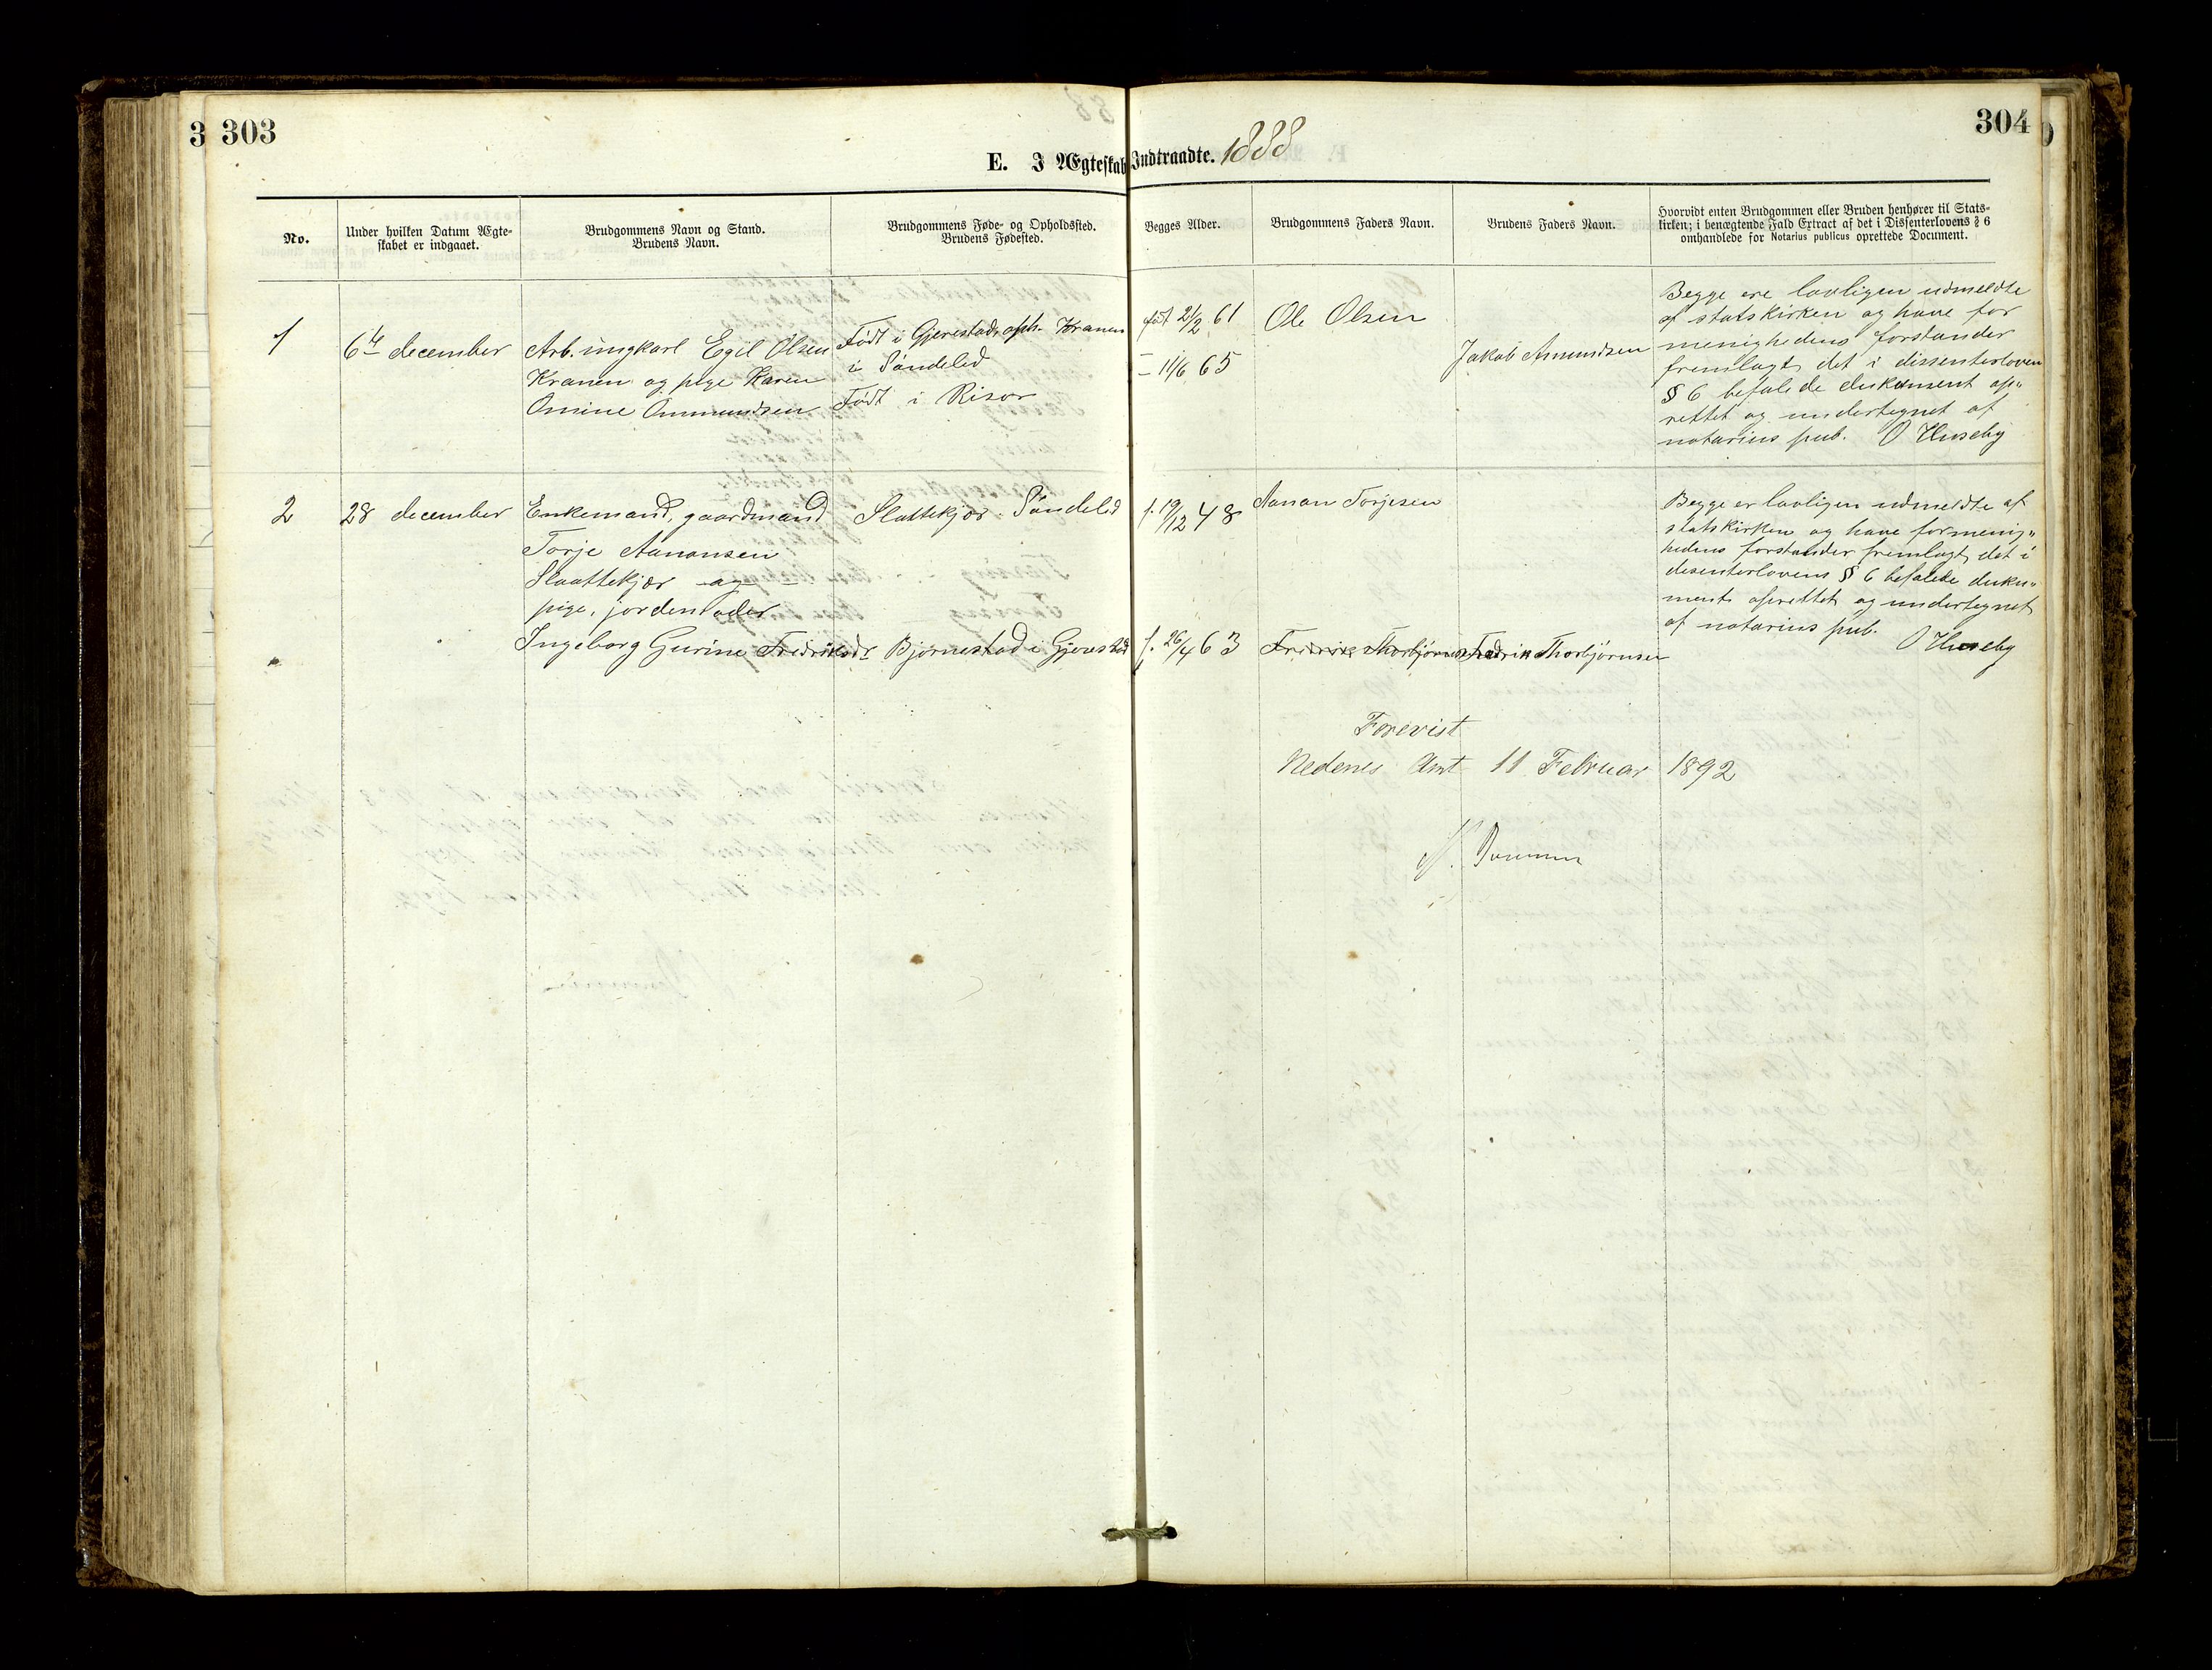 3 303
304
E. I Ægteskab Indtraadte. 1888
No.
Under hvilken Datum Ægte-
skabet er indgaaet.
Brudgommens Navn og Stand.
Brudens Navn.
Brudgommens Føde- og Opholdssted.
Brudens Fødested.
Begges Alder.
Brudgommens Faders Navn.
Brudens Faders Navn.
Hvorvidt enten Brudgommen eller Bruden henhører til Stats-
kirken; i benægtende Fald Extract af det i Dissenterlovens § 6
omhandlede for Notarius publicus oprettede Document.
1
6te december
Arb. ungkarl Egil Olsen
Kranen og pige Karen
Omine Ommundsen
Født i Gjerestad, oph. Kranen
i Søndeled
Født i Risør
født 21/2 61
— 11/6 65
Ole Olsen
Jakob Amundsen
Begge ere lovligen udmeldte
af statskirken og have for
menighedens forstander
fremlagt det i dissenterloven
§ 6 befalede dukument op„
rettet og undertegnet af
notarius pub. O Huseby
2
28 december
Enkemand, gaardmand
Torje Aanonsen
Slaattekjær og
pige, jordemoder
Ingeborg Gurine Fredriksdr
Slattekjær Søndeled
Bjørnestad i Gjerestad
f. 19/12 48
f. 26/4 63
Aanon Torjesen
Fredrik Thorbjørnsen
Fredrik Thorbjørnsen
Begge er lovligen udmeldte af
statskirken og have for menig„
hedens forstander fremlagt det i
desenterlovens § 6 befalede duku„
ment oprettet og undertegnet
af notarius pub.
O Huseby
Forevist
Nedenes Amt 11 Februar 1892